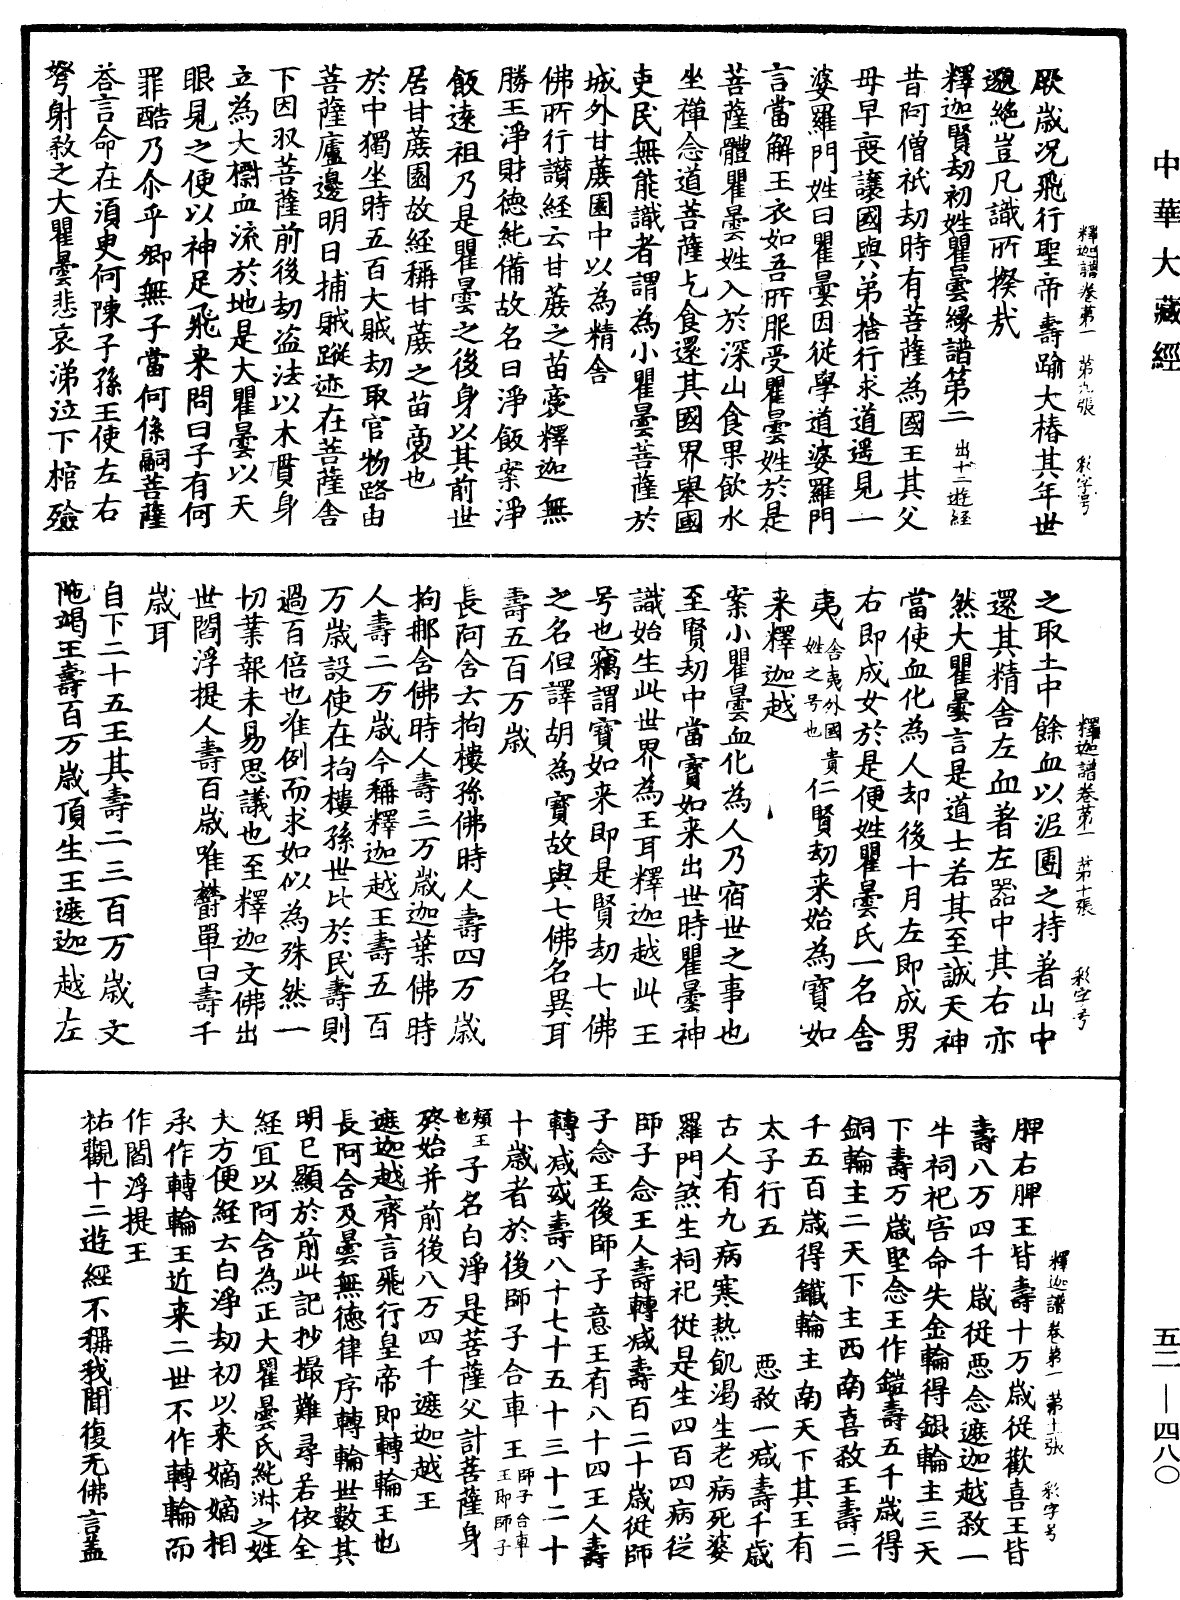 中華大藏經
釋迦譜卷第一　第九張　彩字号
厥歲况飛行聖帝壽踰大椿其年世
邈絕豈凡識所揆㦲
釋迦賢劫初姓瞿曇緣譜第二　出十二遊經
昔阿僧祇劫時有菩薩為國王其父
母早喪讓國與弟捨行求道遥見一
婆羅門姓曰瞿曇因從學道婆羅門
言當解王衣如吾所服受瞿曇姓於是
菩薩體瞿曇姓入於深山食果飲水
坐禪念道菩薩乞食還其國界舉國
吏民無能識者謂為小瞿曇菩薩於
城外甘蔗園中以為精舍
佛所行讚經云甘蔗之苗裔釋迦無
勝王淨財德純備故名曰淨飯案淨
飯遠祖乃是瞿曇之後身以其前世
居甘蔗園故經稱甘蔗之苗裔也
於中獨坐時五百大賊劫取官物路由
菩薩廬邊明日捕賊蹤迹在菩薩舍
下因収菩薩前後劫盜法以木貫身
立為大㯹血流於地是大瞿曇以天
眼見之便以神足飛来問曰子有何
罪酷乃尒乎卿無子當何係嗣菩薩
荅言命在須臾何陳子孫王使左右
弩射敎之大瞿曇悲哀涕泣下棺殮
釋迦譜卷第一　第十張　彩字号
之取土中餘血以泥團之持著山中
還其精舍左血著左器中其右亦
然大瞿曇言是道士若其至誠天神
當使血化為人却後十月左即成男
右即成女於是便姓瞿曇氏一名舍
夷　舍夷外國貴姓之号也　仁賢劫来始為寶如
来釋迦越
案小瞿曇血化為人乃宿世之事也
至賢劫中當寶如来出世時瞿曇神
識始生此世界為王耳釋迦越此王
号也竊謂寶如来即是賢劫七佛
之名但譯胡為寶故與七佛名異耳
壽五百万歲
長阿含云拘樓孫佛時人壽四万歲
拘那含佛時人壽三万歲迦葉佛時
人壽二万歲今稱釋迦越王壽五百
万歲設使在拘樓孫世比於民壽則
過百倍也准例而求如似為殊然一
切業報未易思議也至釋迦文佛出
世閻浮提人壽百歲唯欝單曰壽千
歲耳
自下二十五王其壽二三百万歲文
陁竭王壽百万歲頂生王遮迦越左
釋迦譜卷第一　第十一張　彩字号
髀右髀王皆壽十万歲從歡喜王皆
壽八万四千歲從惡念遮迦越敎一
牛祠祀害命失金輪得銀輪主三天
下壽万歲堅念王作鎧壽五千歲得
銅輪主二天下主西南喜敎王壽二
千五百歲得鐵輪主南天下其王有
太子行五　　惡敎一減壽千歲
古人有九病寒熱飢渴生老病死婆
羅門煞生祠祀從是生四百四病從
師子念王人壽轉減壽百二十歲從師
子念王後師子意王有八十四王人壽
轉減或壽八十七十五十三十二十
十歲者於後師子合車王　師子合車王即師子
頰王也　子名白淨是菩薩父計菩薩身
終始并前後八万四千遮迦越王
遮迦越齊言飛行皇帝即轉輪王也
長阿含及曇無德律序轉輪世數其
明已顯於前此記抄撮難尋若依全
經宜以阿含為正大瞿曇氏純淑之姓
大方便經云白淨劫初以来嫡嫡相
承作轉輪王近来二世不作轉輪而
作閻浮提王
祐觀十二遊經不稱我聞復无佛言蓋
五二—四八〇